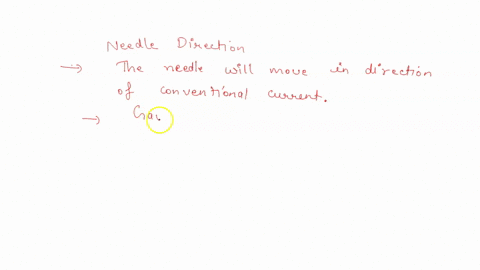 Needle Direction
→ The needle will move in direction
of conventional current.
→